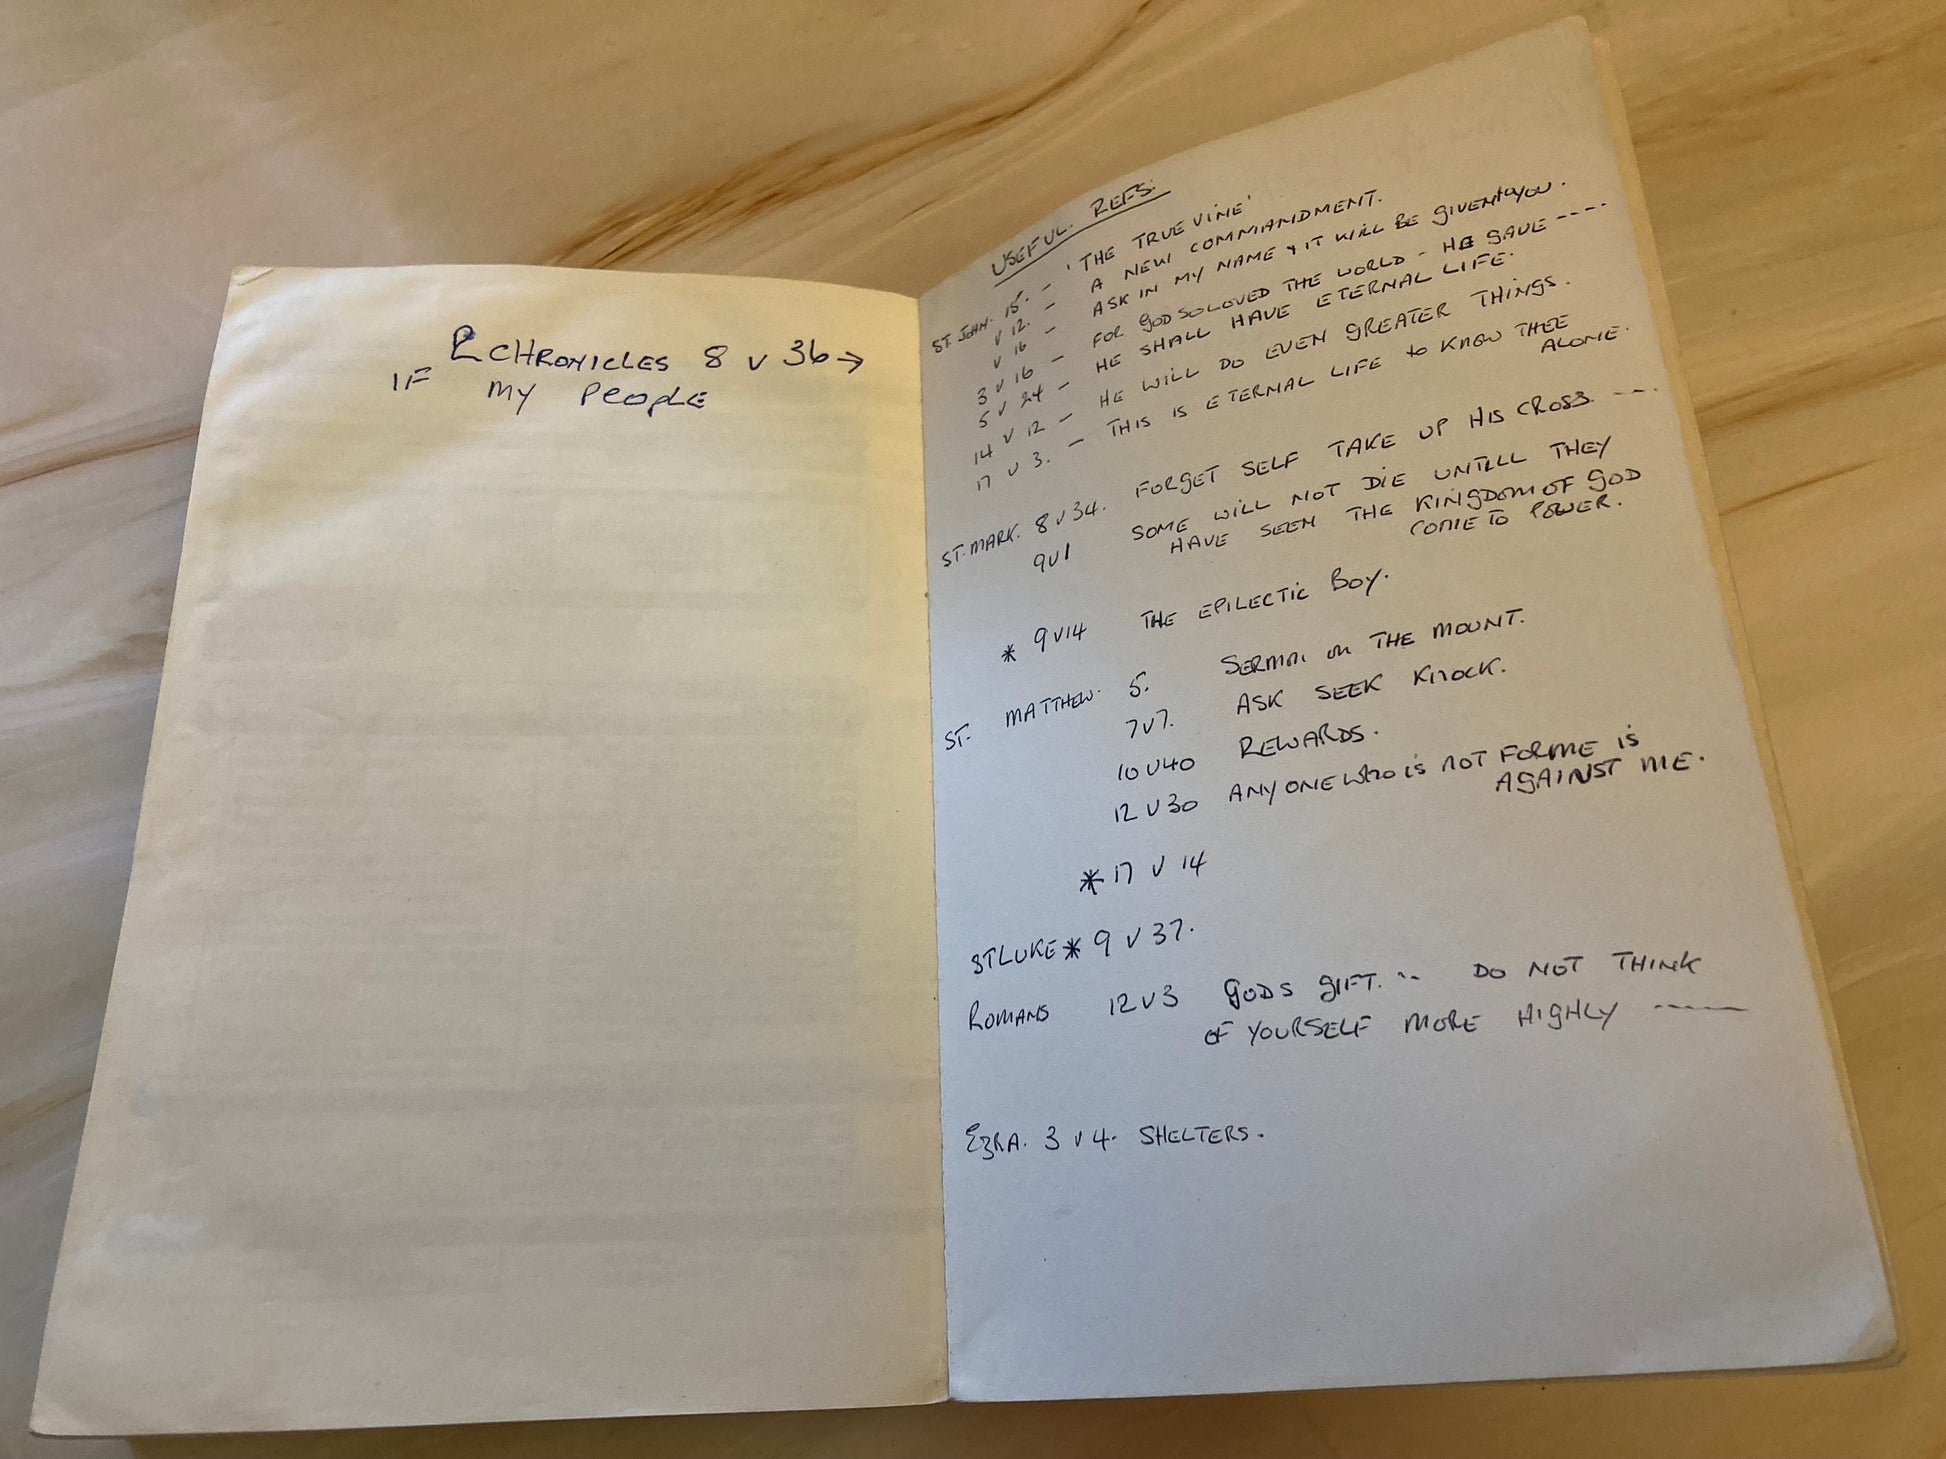 2 CHRONICLES 8 v 36 →
IF MY PEOPLE
USEFUL REFS.
ST. JOHN. 15. – 'THE TRUE VINE'
v 12. – A NEW COMMANDMENT.
v 16 – ASK IN MY NAME & IT WILL BE GIVEN to YOU.
3 v 16 – FOR GOD SO LOVED THE WORLD – HE GAVE ----
5 v 24 – HE SHALL HAVE ETERNAL LIFE.
14 v 12 – HE WILL DO EVEN GREATER THINGS.
17 v 3. – THIS IS ETERNAL LIFE to KNOW THEE
ALONE.
ST. MARK. 8 v 34. FORGET SELF TAKE UP HIS CROSS ----
9 v 1 SOME WILL NOT DIE UNTILL THEY
HAVE SEEN THE KINGDOM OF GOD
COME TO POWER.
* 9 v 14 THE EPILECTIC BOY.
ST. MATTHEW. 5. SERMON ON THE MOUNT.
7 v 7. ASK SEEK KNOCK.
10 v 40 REWARDS.
12 v 30 ANYONE WHO IS NOT FOR ME IS
AGAINST ME.
* 17 v 14
ST LUKE * 9 v 37.
ROMANS 12 v 3 GODS GIFT. -- DO NOT THINK
OF YOURSELF MORE HIGHLY -----
EZRA. 3 v 4. SHELTERS.